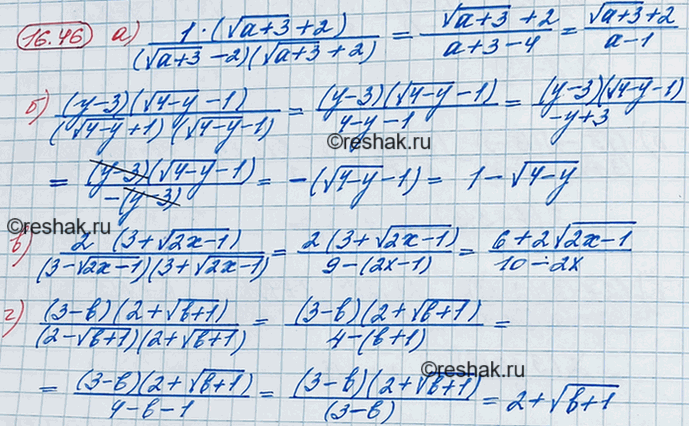 16.46 а) 1·(√(a+3)+2) / (√(a+3)−2)(√(a+3)+2) = √(a+3)+2 / a+3−4 = √(a+3)+2 / a−1
©reshak.ru
б) (y−3)(√(4−y)−1) / (√(4−y)+1)(√(4−y)−1) = (y−3)(√(4−y)−1) / 4−y−1 = (y−3)(√(4−y)−1) / −y+3
= (y−3)(√(4−y)−1) / −(y−3) = −(√(4−y)−1) = 1−√(4−y)
©reshak.ru
в) 2 (3+√(2x−1)) / (3−√(2x−1))(3+√(2x−1)) = 2(3+√(2x−1)) / 9−(2x−1) = 6+2√(2x−1) / 10−2x
г) (3−b)(2+√(b+1)) / (2−√(b+1))(2+√(b+1)) = (3−b)(2+√(b+1)) / 4−(b+1) =
©reshak.ru
= (3−b)(2+√(b+1)) / 4−b−1 = (3−b)(2+√(b+1)) / (3−b) = 2+√(b+1)